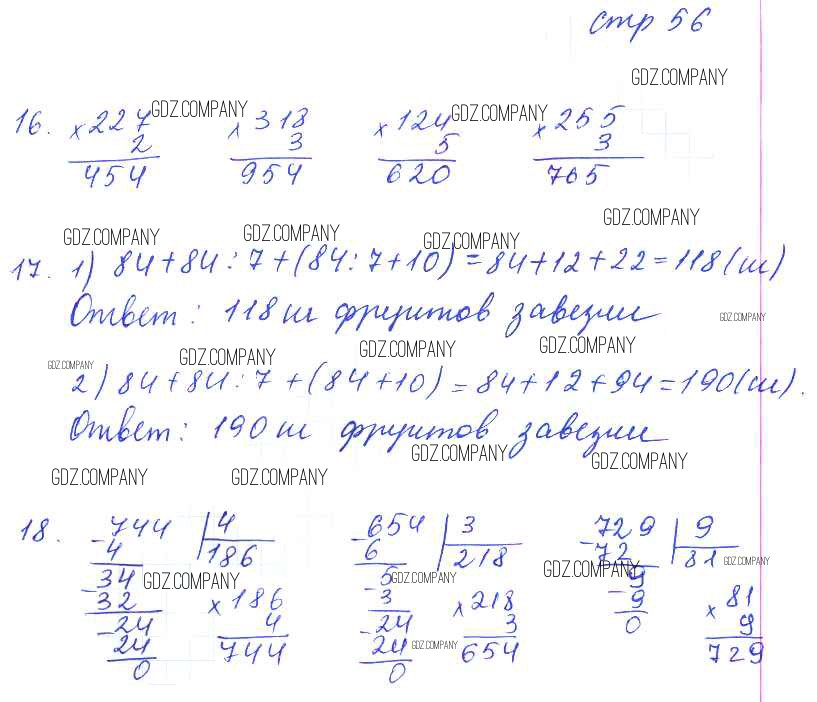 стр 56
GDZ.COMPANY
16. × 227 GDZ.COMPANY × 318 × 124 GDZ.COMPANY × 255
2 3 5 3
454 954 620 765
GDZ.COMPANY GDZ.COMPANY GDZ.COMPANY GDZ.COMPANY
17. 1) 84+84:7+(84:7+10)=84+12+22=118(ш)
Ответ: 118 ш фруктов завезли GDZ.COMPANY
GDZ.COMPANY GDZ.COMPANY GDZ.COMPANY GDZ.COMPANY
2) 84+84:7+(84+10)=84+12+94=190(ш).
Ответ: 190 ш фруктов завезли
GDZ.COMPANY GDZ.COMPANY GDZ.COMPANY GDZ.COMPANY
18. -744 |4 -654 |3 -729 |9
4 186 6 218 72 81 GDZ.COMPANY
-34 GDZ.COMPANY 5 GDZ.COMPANY 9 GDZ.COMPANY
-32 × 186 -3 × 218 -9 × 81
-24 4 -24 3 0 9
24 744 24 GDZ.COMPANY 654 729
0 0